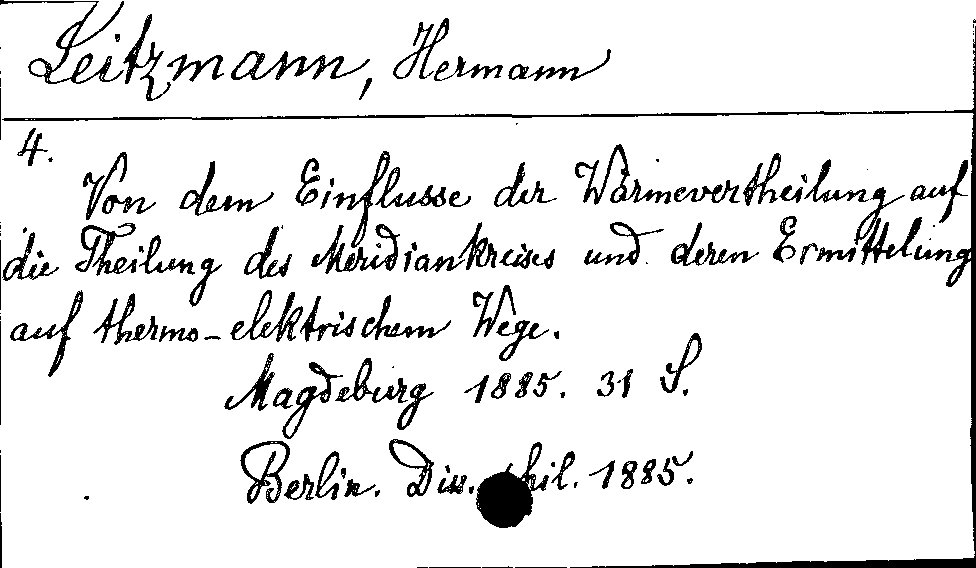 Leitzmann, Hermann
4.
Von dem Einflusse der Wärmevertheilung auf
die Theilung des Meridiankreises und deren Ermittelung
auf thermo-elektrischem Wege.
Magdeburg 1885. 31 S.
Berlin. Diss. phil. 1885.